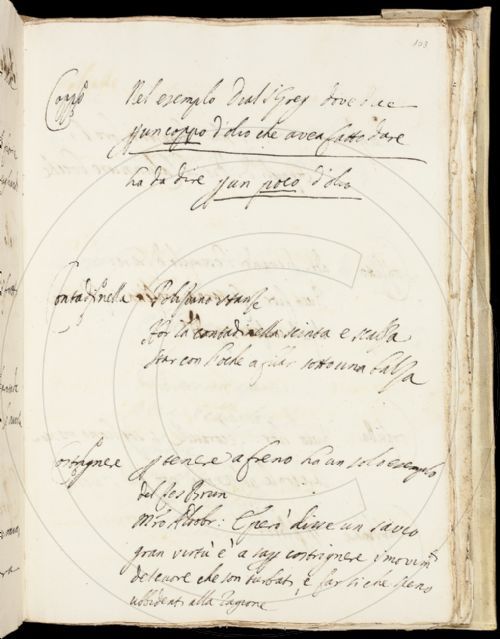 103
Coppo Nel esempio Dial S Greg dove dice
p un coppo d'olio che avea fatto dare
ha da dire p un poco d'olio
Contadinella Poliziano stanze
Hor la contadinella scinta e scalza
star con l'oche a filar sotto una balza
Costrignere p tenere a freno ha un solo esempio
del Tes Brun
Mro Aldobr: E però disse un savio
gran virtù è a sap costrignere i movimti
del cuore che son turbati, e far si che sieno
ubbidenti alla ragione